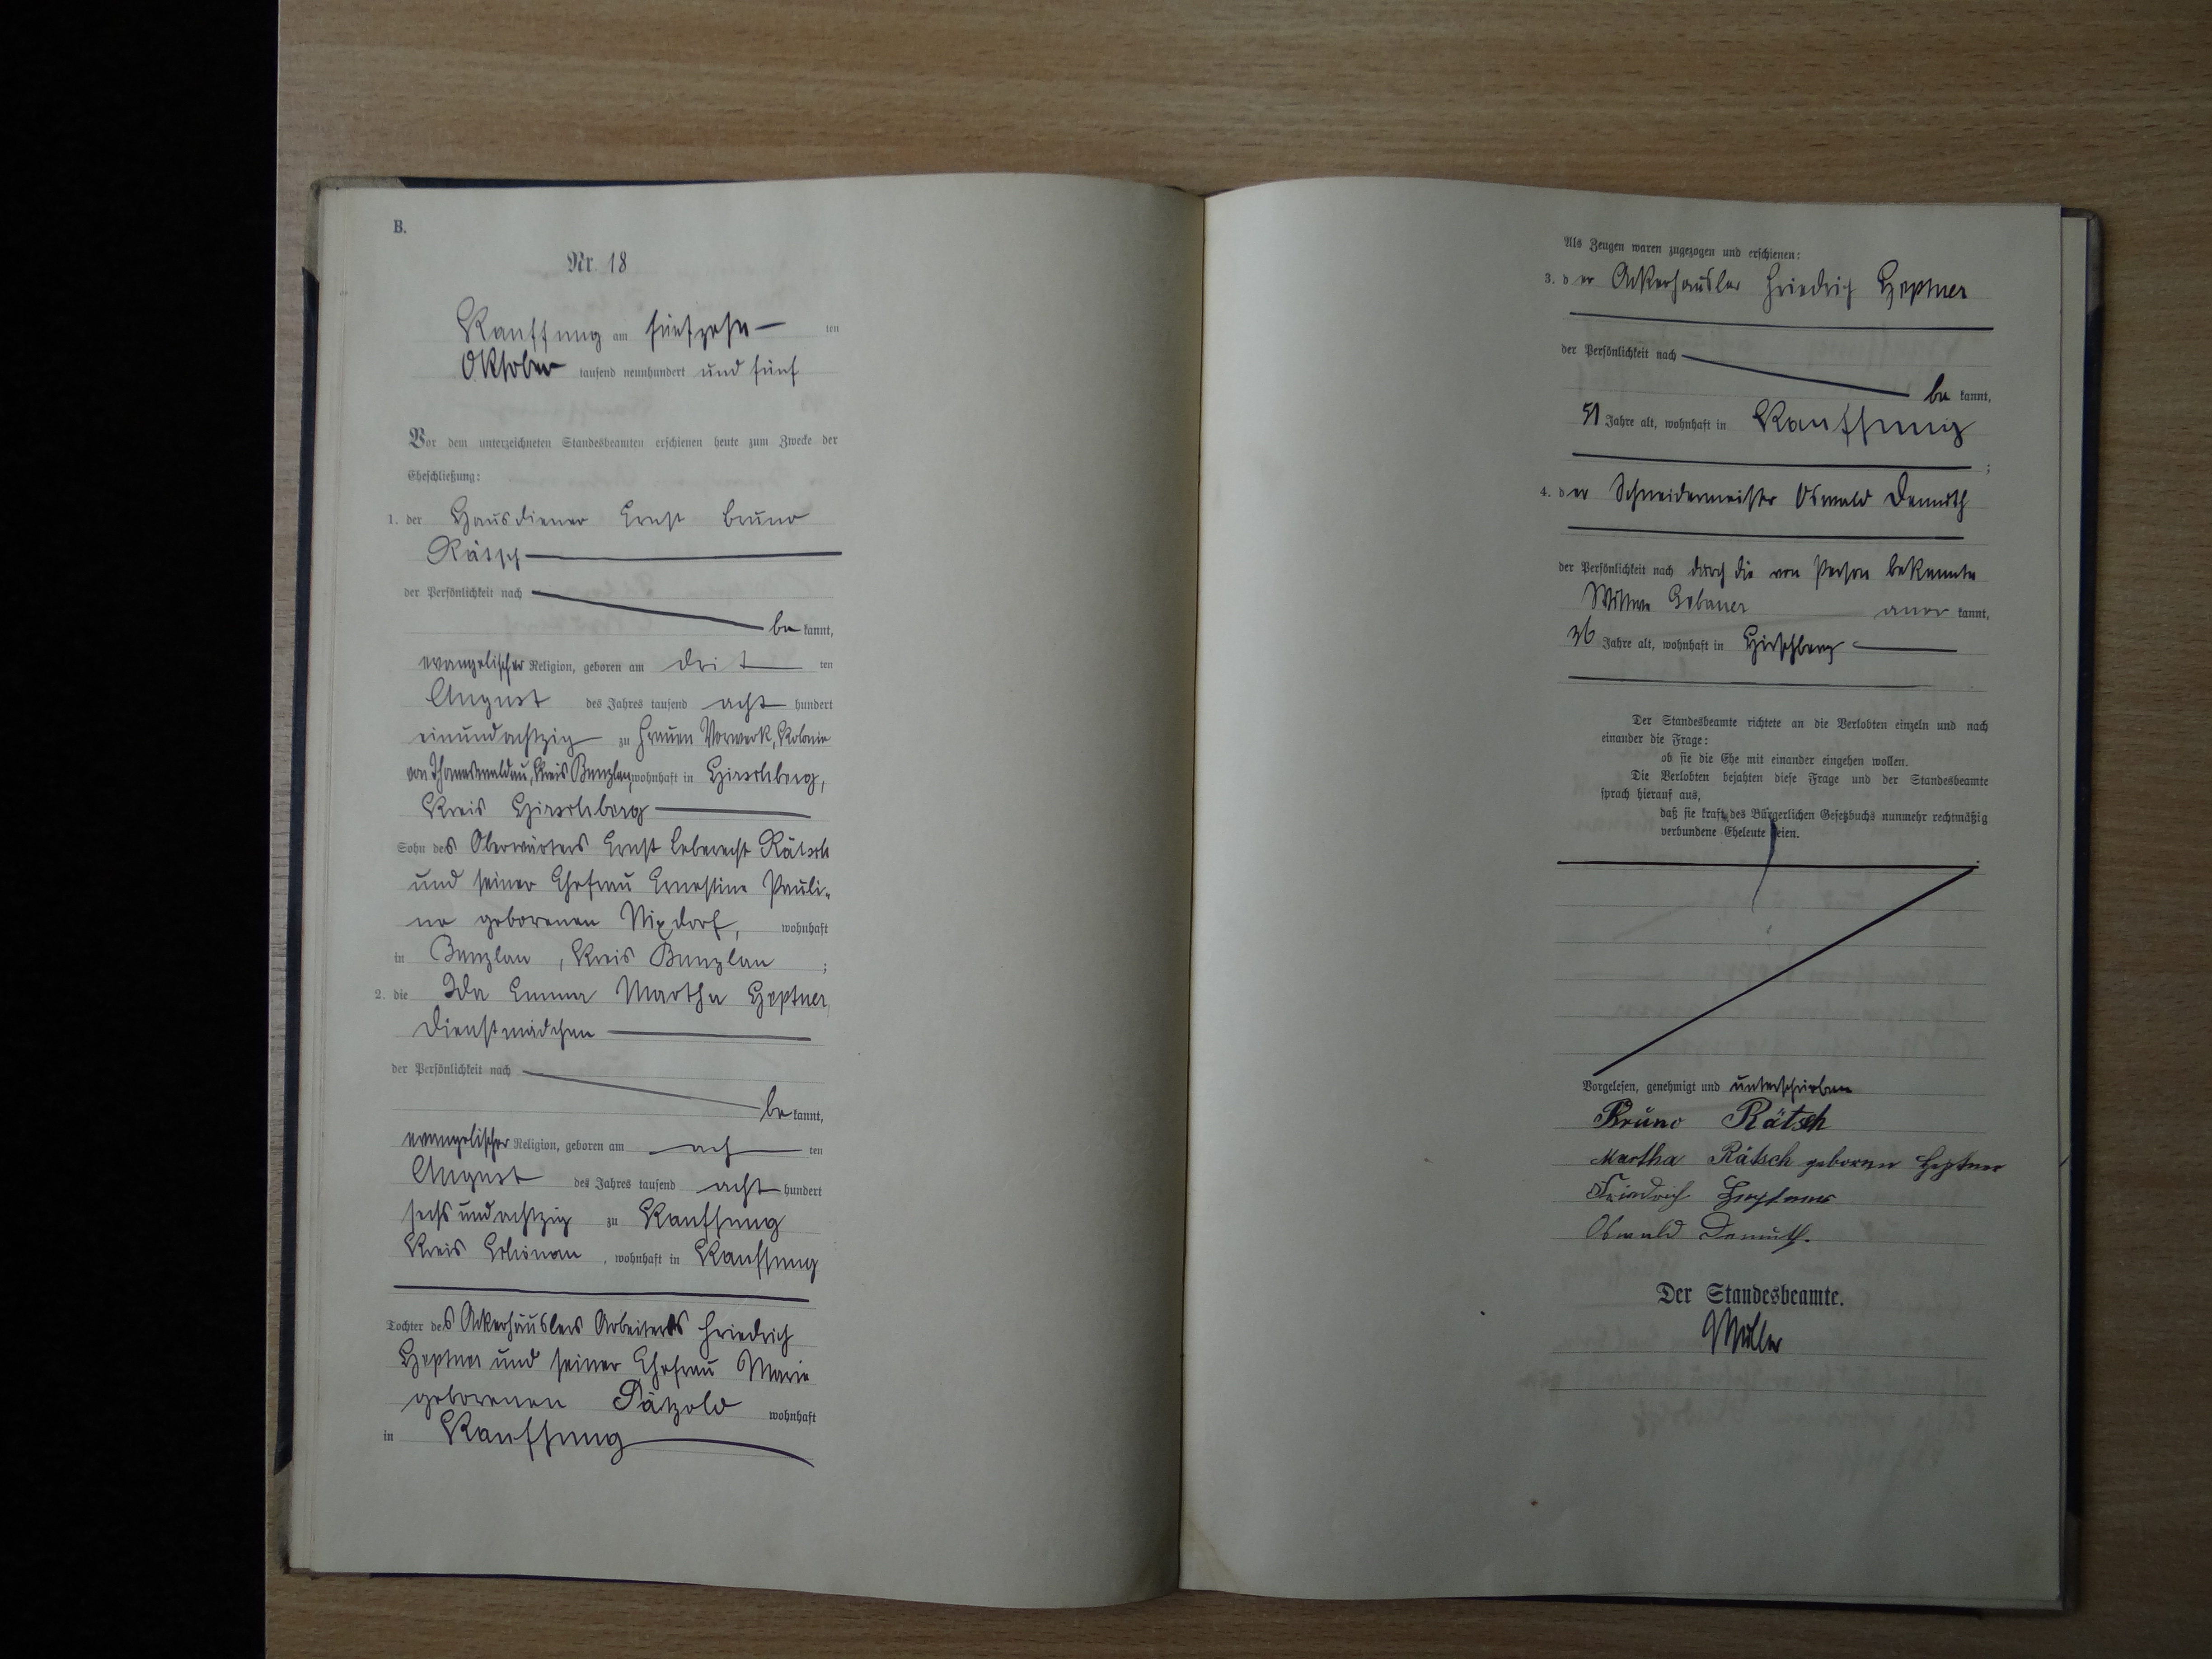 B.
Nr. 18
Kauffung am fünfzehn ten
Oktober tausend neunhundert und fünf
Vor dem unterzeichneten Standesbeamten erschienen heute zum Zwecke der
Eheschließung:
1. der Hausdiener Ernst Bruno
Rätsch
der Persönlichkeit nach
be kannt,
evangelischer Religion, geboren am drit ten
August des Jahres tausend acht hundert
einundachtzig zu Frauen Vorwerk, Kolonie
von Thomaswaldau, Kreis Bunzlau, wohnhaft in Hirschberg,
Kreis Hirschberg
Sohn des Oberwärters Ernst Leberecht Rätsch
und seiner Ehefrau Ernestine Pauli-
ne geborenen Nixdorf, wohnhaft
in Bunzlau, Kreis Bunzlau ;
2. die Ida Emma Martha Heptner,
Dienstmädchen
der Persönlichkeit nach
be kannt,
evangelischer Religion, geboren am ach ten
August des Jahres tausend acht hundert
sechsundachtzig zu Kauffung
Kreis Schönau, wohnhaft in Kauffung
Tochter des Ackerhäuslers Arbeiters Friedrich
Heptner und seiner Ehefrau Marie
geborenen Pätzold wohnhaft
in Kauffung
Als Zeugen waren zugezogen und erschienen:
3. der Ackerhäusler Friedrich Heptner
der Persönlichkeit nach
be kannt,
51 Jahre alt, wohnhaft in Kauffung
;
4. der Schneidermeister Oswald Demuth
der Persönlichkeit nach durch die von Person bekannte
Witwe Gebauer aner kannt,
36 Jahre alt, wohnhaft in Hirschberg
Der Standesbeamte richtete an die Verlobten einzeln und nach
einander die Frage:
ob sie die Ehe mit einander eingehen wollen.
Die Verlobten bejahten diese Frage und der Standesbeamte
sprach hierauf aus,
daß sie kraft des Bürgerlichen Gesetzbuchs nunmehr rechtmäßig
verbundene Eheleute seien.
Vorgelesen, genehmigt und unterschrieben
Bruno Rätsch
Martha Rätsch geborene Heptner
Friedrich Heptner
Oswald Demuth.
Der Standesbeamte.
Müller